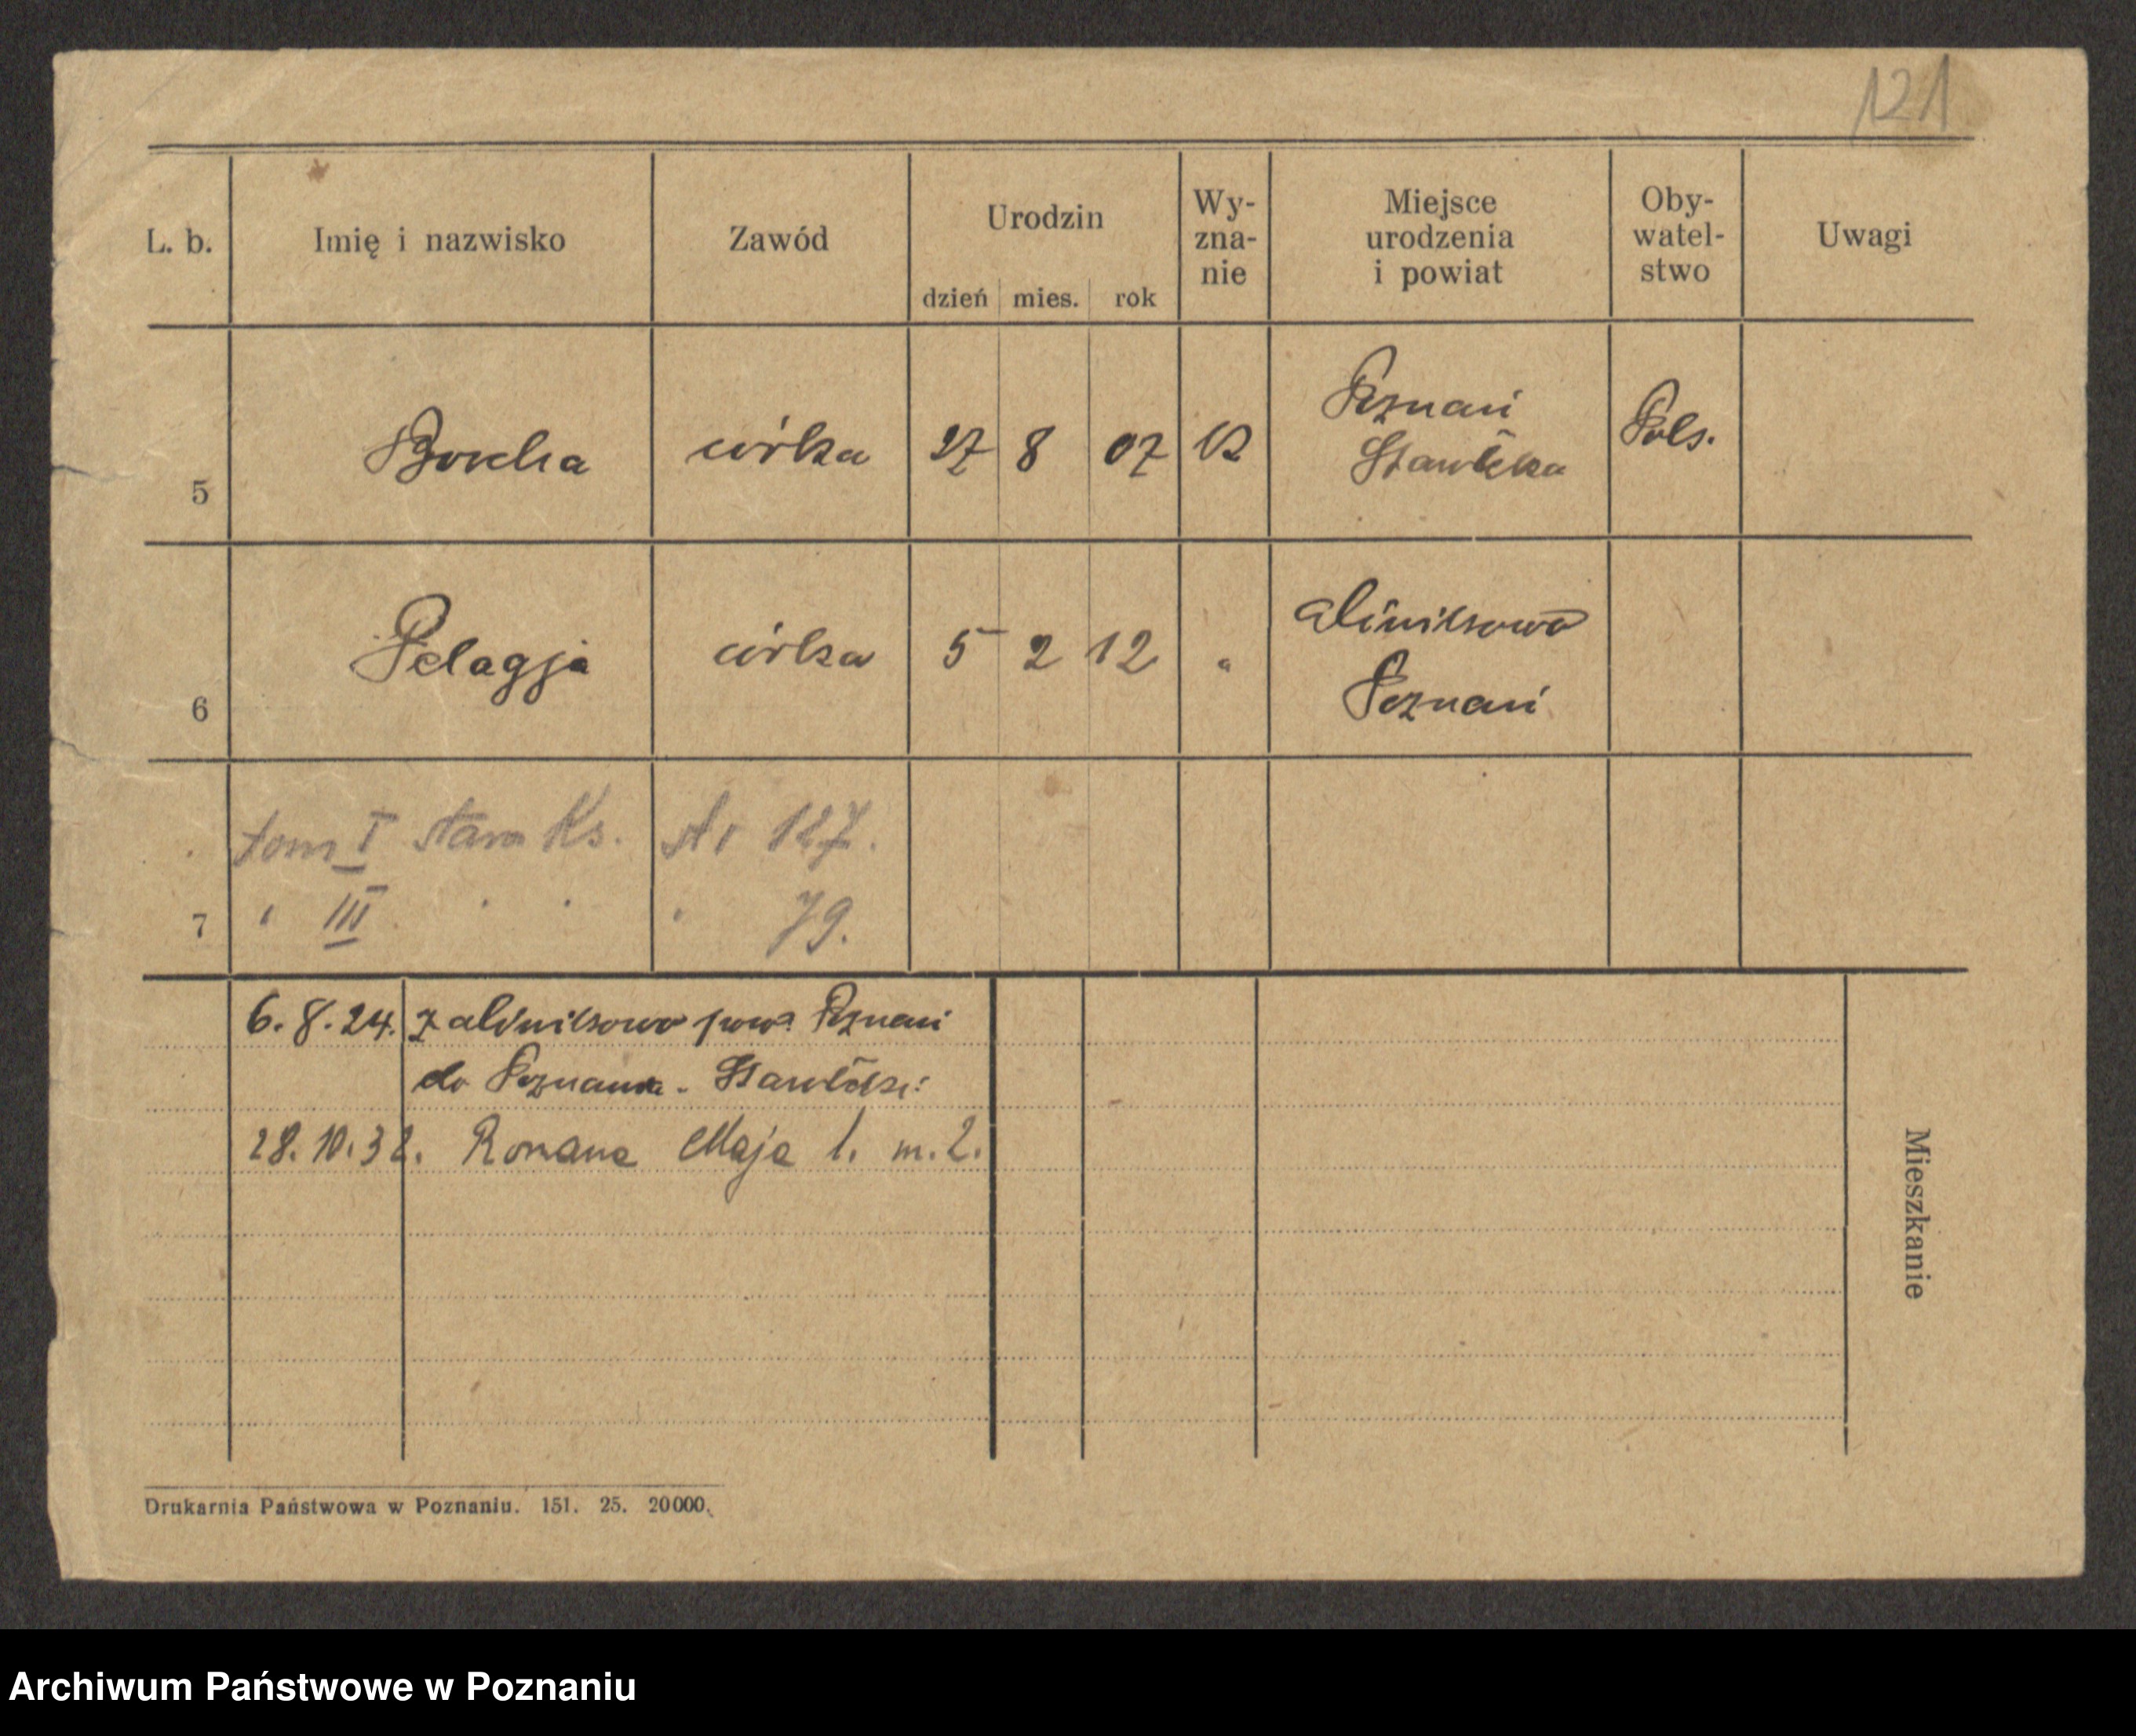 121
L. b. Imię i nazwisko Zawód Urodzin Wy-zna-nie Miejsce urodzenia i powiat Oby-watel-stwo Uwagi
dzień mies. rok
5 córka 27 8 07 K Poznań Pols.
6 Pelagja córka 5 2 12 " Minikowo
Poznań
tom I stara Ks. str 127.
7 " III " " " 79.
6.8.24. z Minikowo pow. Poznań
do Poznania - Starółęki
28.10.32. Romana Maja 1. m. 2.
Mieszkanie
Drukarnia Państwowa w Poznaniu. 151. 25. 20000.
Archiwum Państwowe w Poznaniu